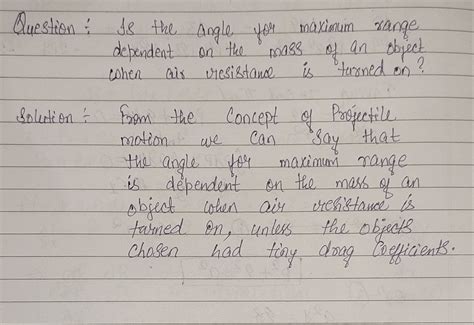 Question :- Is the angle for maximum range
dependent on the mass of an object
when air resistance is turned on?
Solution :- From the concept of Projectile
motion we can say that
the angle for maximum range
is dependent on the mass of an
object when air resistance is
turned on, unless the objects
chosen had tiny drag coefficients.